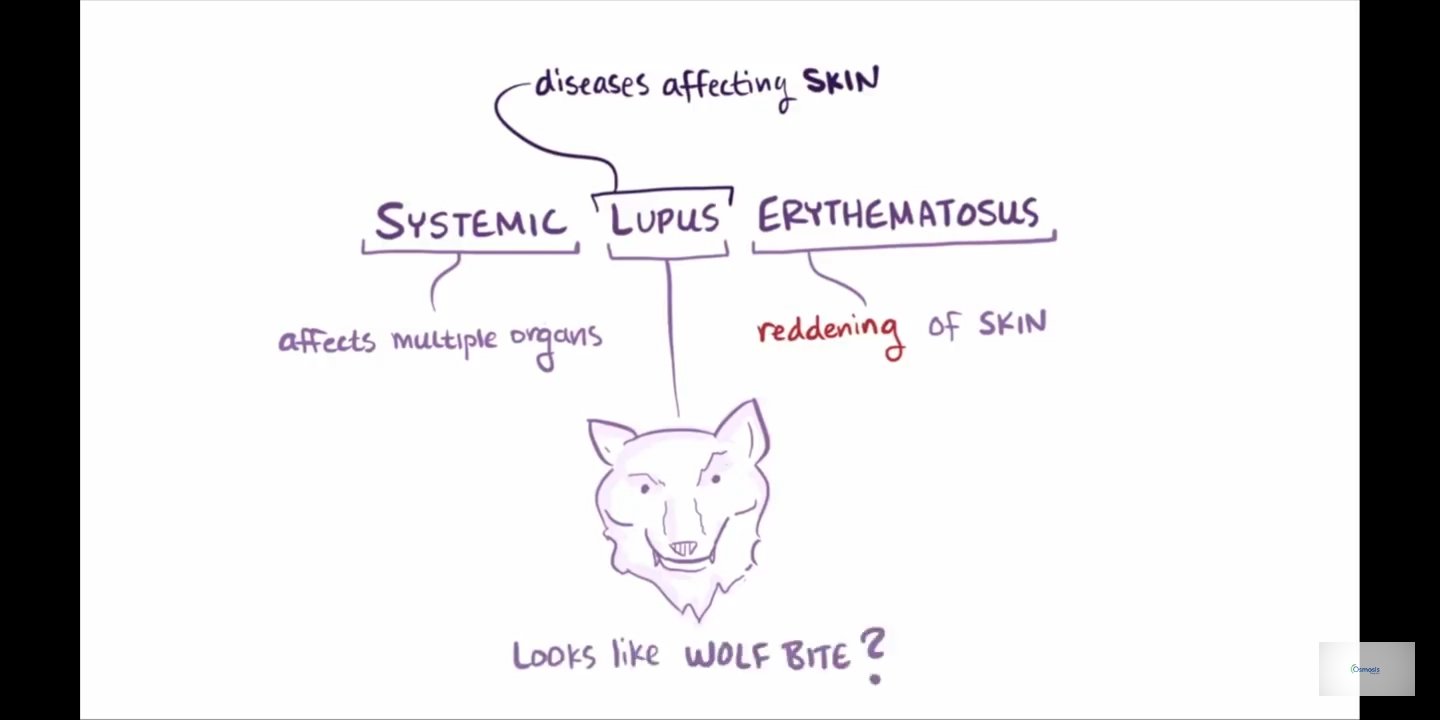 diseases affecting SKIN
SYSTEMIC LUPUS ERYTHEMATOSUS
affects multiple organs
reddening of SKIN
Looks like WOLF BITE?
Osmosis